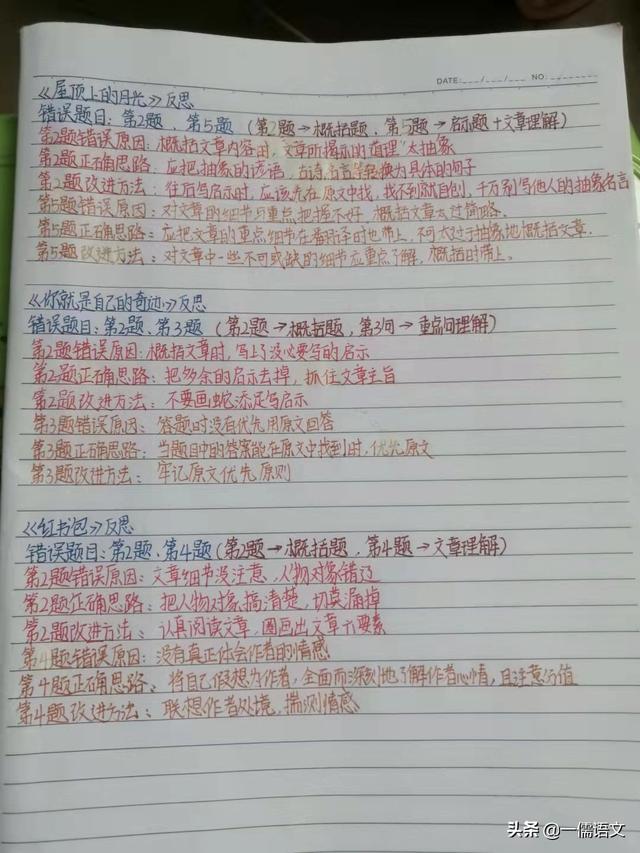 DATE:___/___/___ NO:______
《屋顶上的月光》反思
错误题目:第2题、第5题(第2题→概括题、第5题→启示题+文章理解)
第2题错误原因:概括文章内容时,文章所揭示的道理太抽象
第2题正确思路:应把抽象的谚语,古诗,名言等转换为具体的句子
第2题改进方法:往后写启示时,应该先在原文中找,找不到就自创,千万别写他人的抽象名言
第5题错误原因:对文章的细节与重点把握不好,概括文章太过简略。
第5题正确思路:应把文章的重点细节在时也带上,不可太过于抽象地概括文章.
第5题改进方法:对文章中一些不可或缺的细节应重点了解,概括时带上。
《你就是自己的奇迹》反思
错误题目:第2题、第3题(第2题→概括题,第3问→重点问理解)
第2题错误原因:概括文章时,写上了没必要写的启示
第2题正确思路:把多余的启示去掉,抓住文章主旨
第2题改进方法:不要画蛇添足写启示
第3题错误原因:答题时没有优先用原文回答
第3题正确思路:当题目中的答案能在原文中找到时,优先原文
第3题改进方法:牢记原文优先原则
《红书包》反思
错误题目:第2题、第4题(第2题→概括题,第4题→文章理解)
第2题错误原因:文章细节没注意,人物对象错过
第2题正确思路:把人物对象搞清楚,切莫漏掉
第2题改进方法:认真阅读文章,圈画出文章六要素
第4题错误原因:没有真正体会作者的情感
第4题正确思路:将自己假想为作者,全面而深刻地了解作者心情,且注意分值
第4题改进方法:联想作者处境,揣测情感
头条 @一儒语文